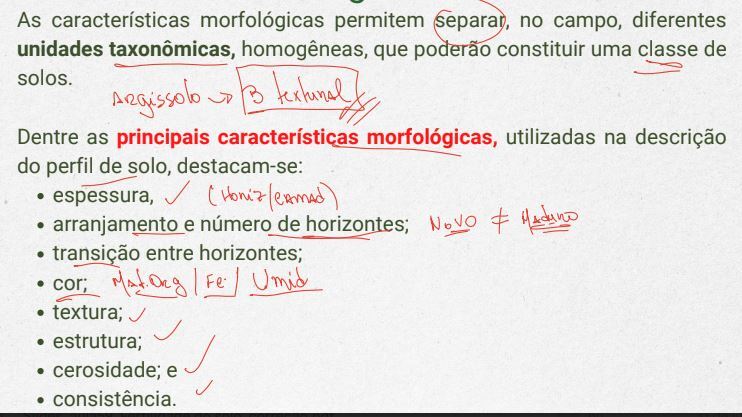 As características morfológicas permitem separar, no campo, diferentes
unidades taxonômicas, homogêneas, que poderão constituir uma classe de
solos.
Argissolo → B textural
Dentre as principais características morfológicas, utilizadas na descrição
do perfil de solo, destacam-se:
• espessura, ✓ (Horiz/camad)
• arranjamento e número de horizontes; Novo ≠ Maduro
• transição entre horizontes;
• cor; Mat.Org | Fe | Umid
• textura; ✓
• estrutura; ✓
• cerosidade; e ✓
• consistência. ✓